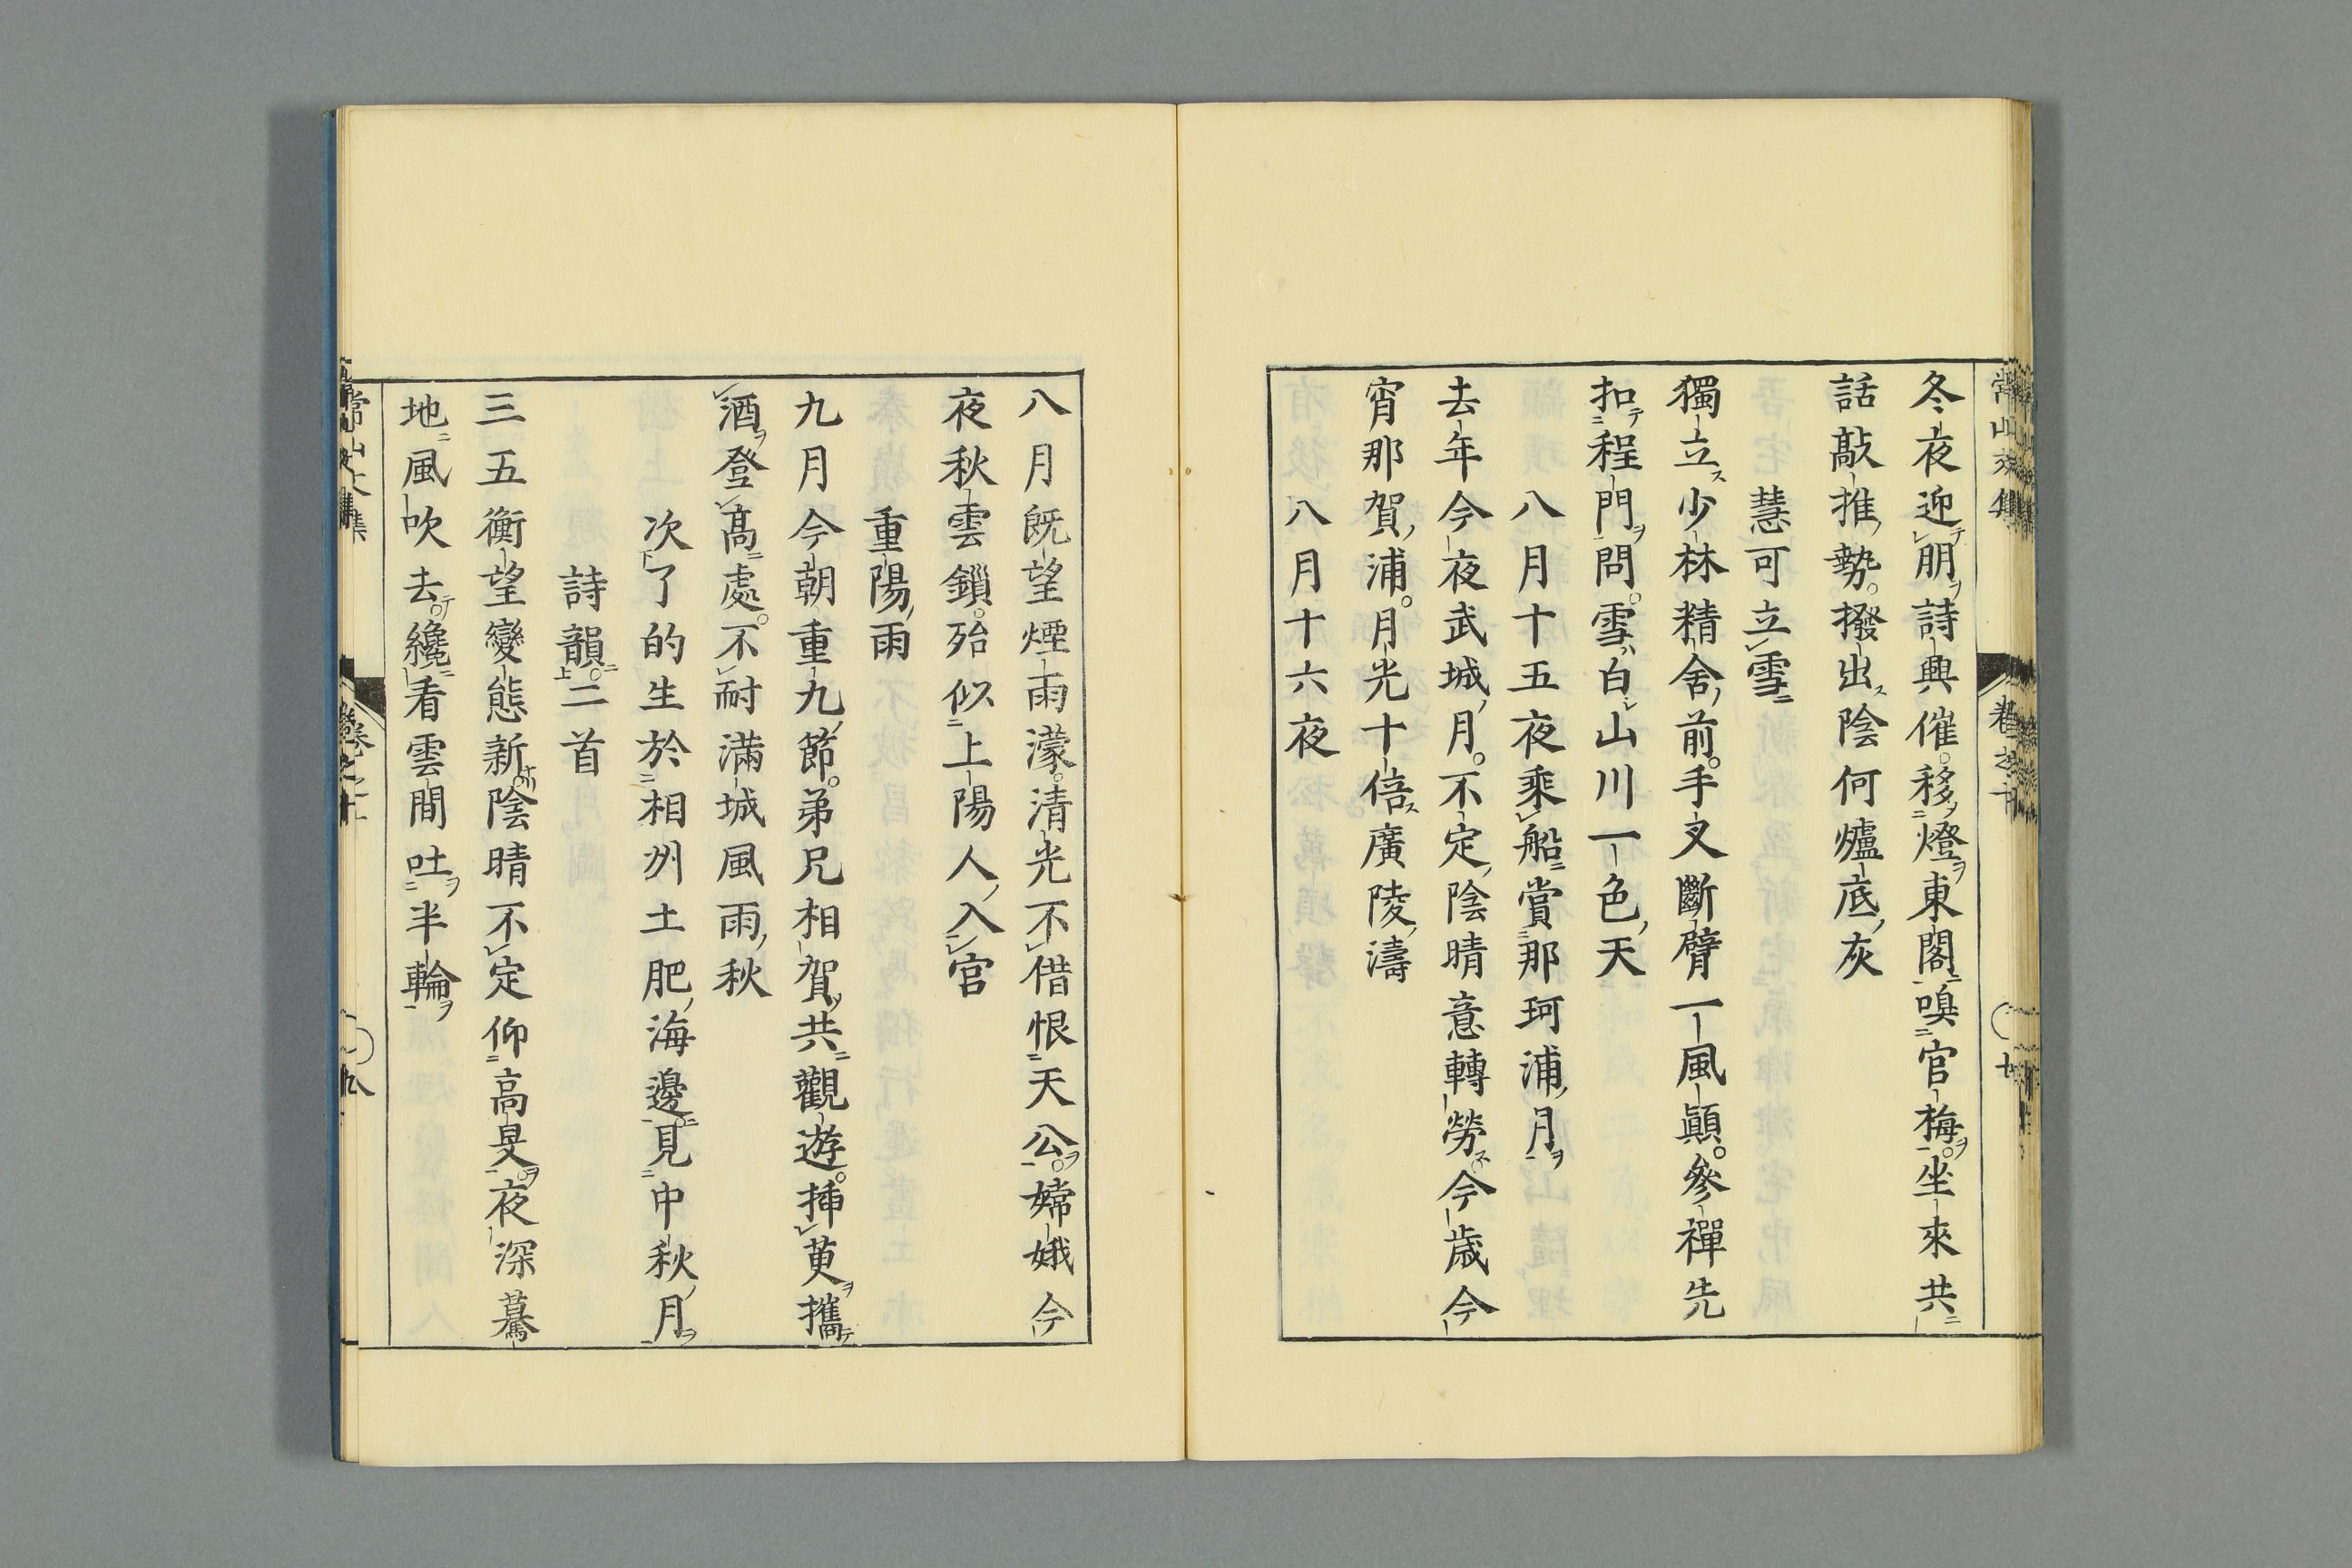 冬夜迎朋詩興催移燈東閣嗅官梅坐來共
話敲推勢撥出陰何爐底灰
慧可立雪
獨立少林精舍前手叉斷臂一風顛參禪先
扣程門問雪白山川一色天
八月十五夜乘船賞那珂浦月
去年今夜武城月不定陰晴意轉勞今歳今
宵那賀浦月光十倍廣陵濤
八月十六夜
八月既望煙雨濛清光不借恨天公嫦娥今
夜秋雲鎖殆似上陽人入宮
重陽雨
九月今朝重九節弟兄相賀共觀遊挿萸攜
酒登髙處不耐滿城風雨秋
次了的生於相州土肥海邊見中秋月
詩韻二首
三五衡望變態新陰晴不定仰高旻夜深驀
地風吹去纔看雲間吐半輪